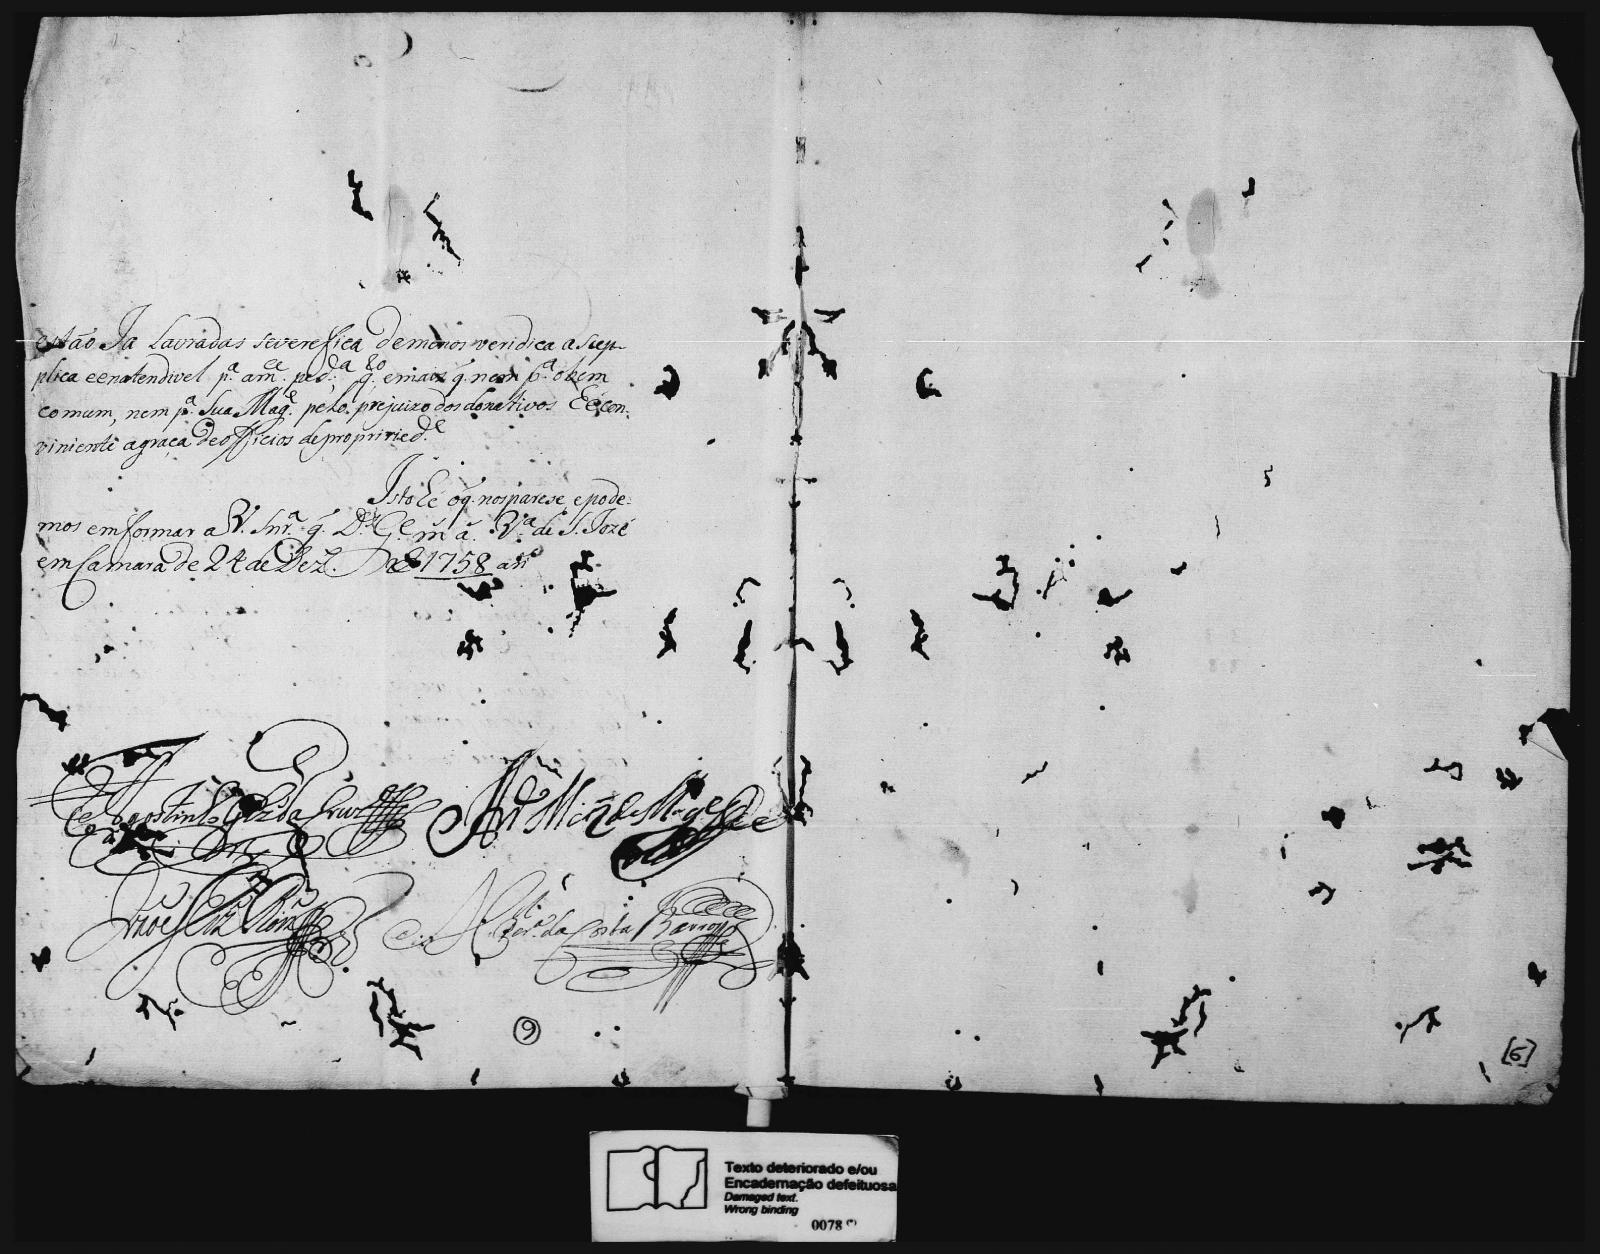 estão Ja Lavradas severefica demenos veridica a sup-
plica eenatendivel p.ª am.ce ped.da q.do emaiz q. nem p.ª obem
comum, nem p.ª Sua Mag.e pelo prejuizo dos donativos hé con-
viniente agraça de officios depropriried.e
Isto hé oq. nosparese, epode-
mos emformar a V. Snr.ª q. D.s G.e m. a. V.ª de S. Jozé
em Camara de 24 de Dez.ro de 1758 an
Agostinho da Cruz
da Costa Barros
9
[6]
Texto deteriorado e/ou
Encadernação defeituosa
Damaged text.
Wrong binding
0078 (*)